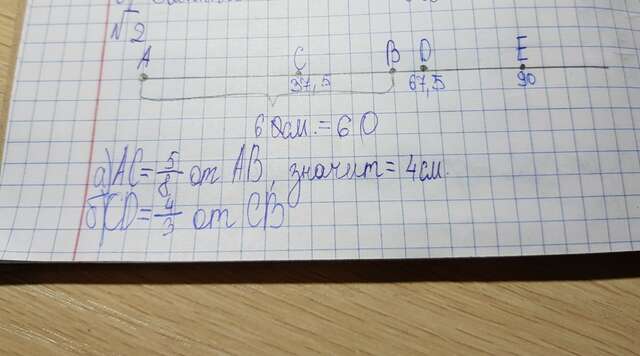 √2
A C B D E
37,5 67,5 90
6 см. = 60
а) AC = 5/8 от AB, значит = 4см.
б) CD = 4/3 от CB